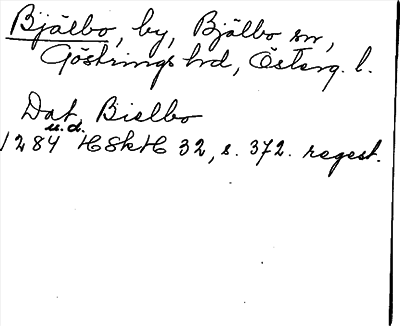 Bjälbo, by, Bjälbo sn,
Göstrings hd, Österg. l.
Dat. Bielbo
u.d.
1284 HSkH 32, s. 372. regest.